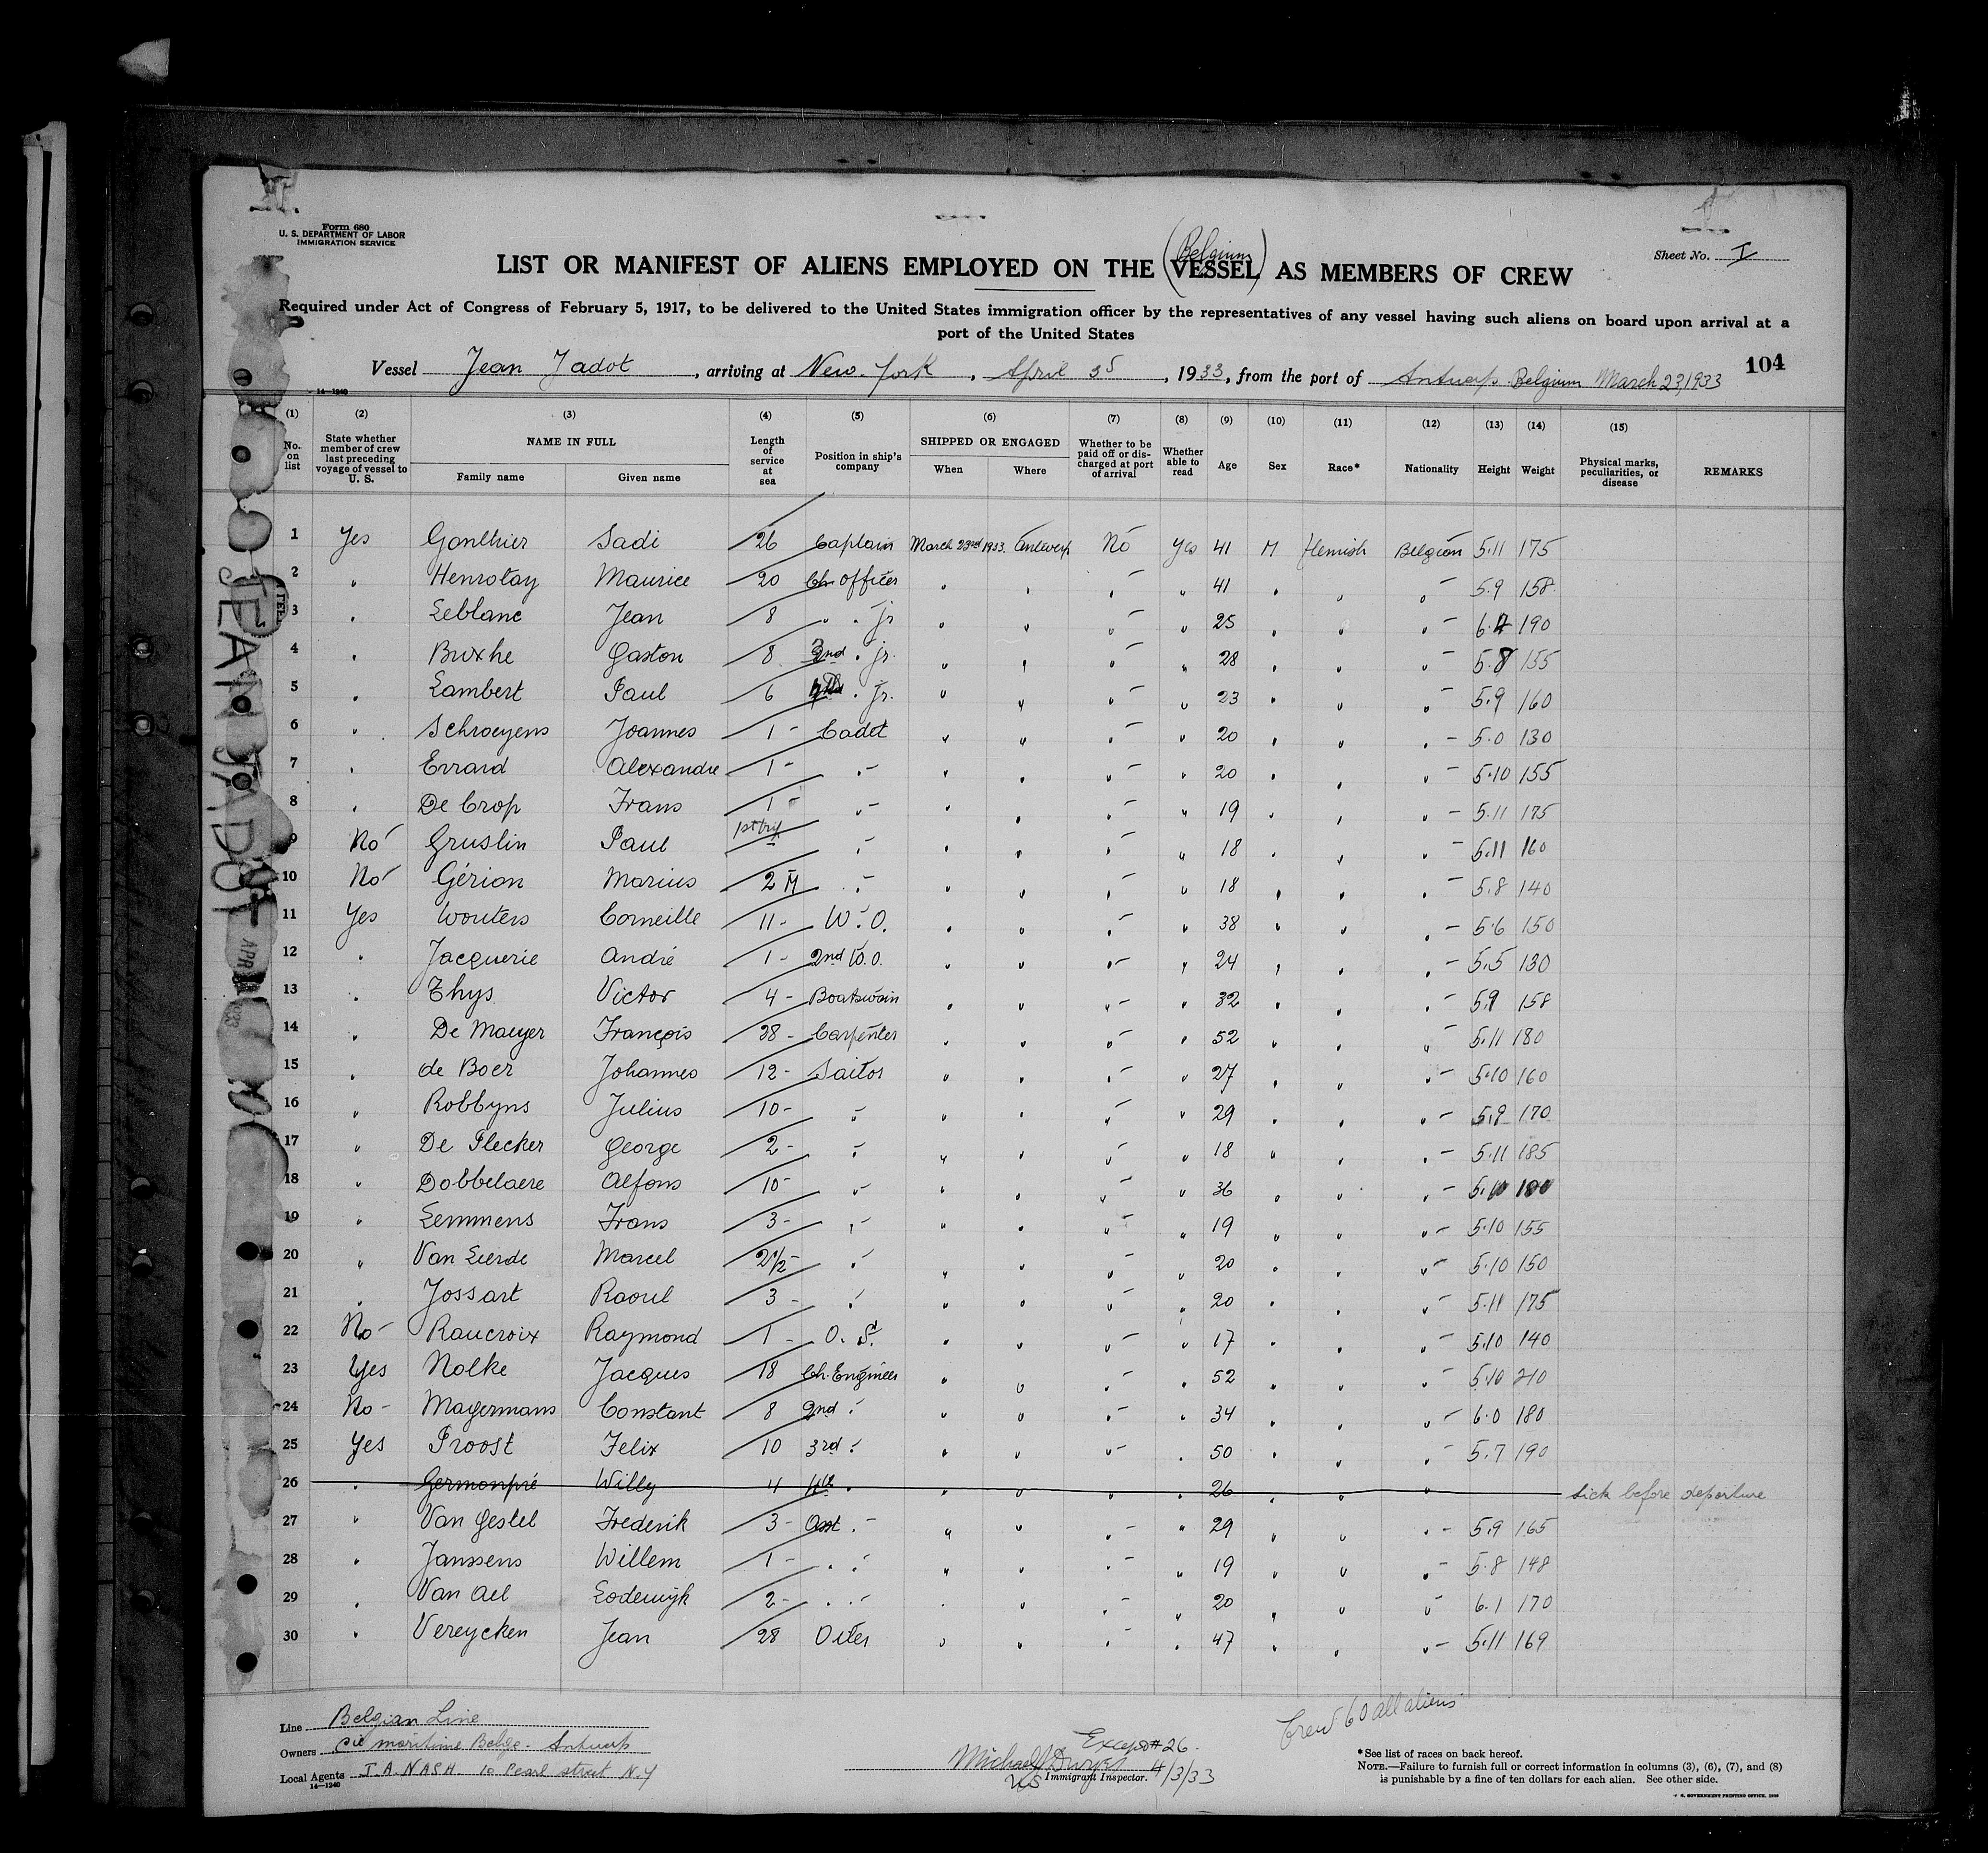 Form 680
U. S. DEPARTMENT OF LABOR
IMMIGRATION SERVICE
Sheet No. I
(Belgium)
LIST OR MANIFEST OF ALIENS EMPLOYED ON THE VESSEL AS MEMBERS OF CREW
Required under Act of Congress of February 5, 1917, to be delivered to the United States immigration officer by the representatives of any vessel having such aliens on board upon arrival at a
port of the United States
Vessel Jean Jadot, arriving at New-York, April, 1933, from the port of Antwerp Belgium March 23, 1933
104
14—1240
(1) (2) (3) (4) (5) (6) (7) (8) (9) (10) (11) (12) (13) (14) (15)
No. on list
State whether member of crew last preceding voyage of vessel to U. S.
NAME IN FULL
Family name
Given name
Length of service at sea
Position in ship's company
SHIPPED OR ENGAGED
When
Where
Whether to be paid off or discharged at port of arrival
Whether able to read
Age
Sex
Race*
Nationality
Height
Weight
Physical marks, peculiarities, or disease
REMARKS
1 Yes Gonthier Sadi 26 Captain March 23rd 1933. Antwerp No Yes 41 M Flemish Belgian 5.11 175
2 " Henrotay Maurice 20 Ch. officer " " " " 41 " " " 5.9 158
3 " Leblanc Jean 8 " " jr " " " " 25 " " " 190
4 " Buxhe Gaston 8 2nd " jr. " " " " 28 " " " 5.8 155
5 " Lambert Paul 6 " jr. " " " " 23 " " " 5.9 160
6 " Schroeyens Joannes 1 - Cadet " " " " 20 " " " 5.0 130
7 " Errard Alexandre 1 - " " " " " 20 " " " 5.10 155
8 " De Crop Frans 1 - " " " " " 19 " " " 5.11 175
9 No Gruslin Paul 1st trip " " " " " 18 " " " 5.11 160
10 No Gérion Marius 2 M " " " " " 18 " " " 5.8 140
11 Yes Wouters Corneille 11 - W. O. " " " " 38 " " " 5.6 150
12 " Jacquerie André 1 - 2nd W.O. " " " " 24 " " " 5.5 130
13 " Thys Victor 4 - Boatswain " " " " 32 " " " 5.9 158
14 " De Maeyer François 28 - Carpenter " " " " 52 " " " 5.11 180
15 " de Boer Johannes 12 - Sailor " " " " 27 " " " 5.10 160
16 " Robbyns Julius 10 - " " " " " 29 " " " 5.9 170
17 " De Plecker George 2 - " " " " " 18 " " " 5.11 185
18 " Dobbelaere Alfons 10 - " " " " " 36 " " " 5.10
19 " Lemmens Frans 3 - " " " " " 19 " " " 5.10 155
20 " Van Lierde Marcel 2 1/2 - " " " " " 20 " " " 5.10 150
21 " Jossart Raoul 3 - " " " " " 20 " " " 5.11 175
22 No - Raucroix Raymond 1 - O. S. " " " " 17 " " " 5.10 140
23 Yes Nolke Jacques 18 Ch. Engineer " " " " 52 " " " 5.10 210
24 No - Magermans Constant 8 2nd " " " " " 34 " " " 6.0 180
25 Yes Proost Felix 10 3rd " " " " " 50 " " " 5.7 190
26 " Germonpré Willy 4 4th " " " " " 26 " " " sick before departure
27 " Van Gestel Frederik 3 - Asst " " " " " 29 " " " 5.9 165
28 " Janssens Willem 1 - " " " " " " 19 " " " 5.8 148
29 " Van Ael Lodewyk 2 - " " " " " " 20 " " " 6.1 170
30 " Vereycken Jean 28 Oiler " " " " 47 " " " 5.11 169
JEAN JADOT
APR
1933
Line Belgian Line
Owners Cie maritime Belge - Antwerp
Local Agents J.A. NASH 10 Pearl street N.Y
14—1240
Crew 60 all aliens
Except # 26.
Michael
Immigrant Inspector. 4/3/33
*See list of races on back hereof.
NOTE.—Failure to furnish full or correct information in columns (3), (6), (7), and (8)
is punishable by a fine of ten dollars for each alien. See other side.
GOVERNMENT PRINTING OFFICE